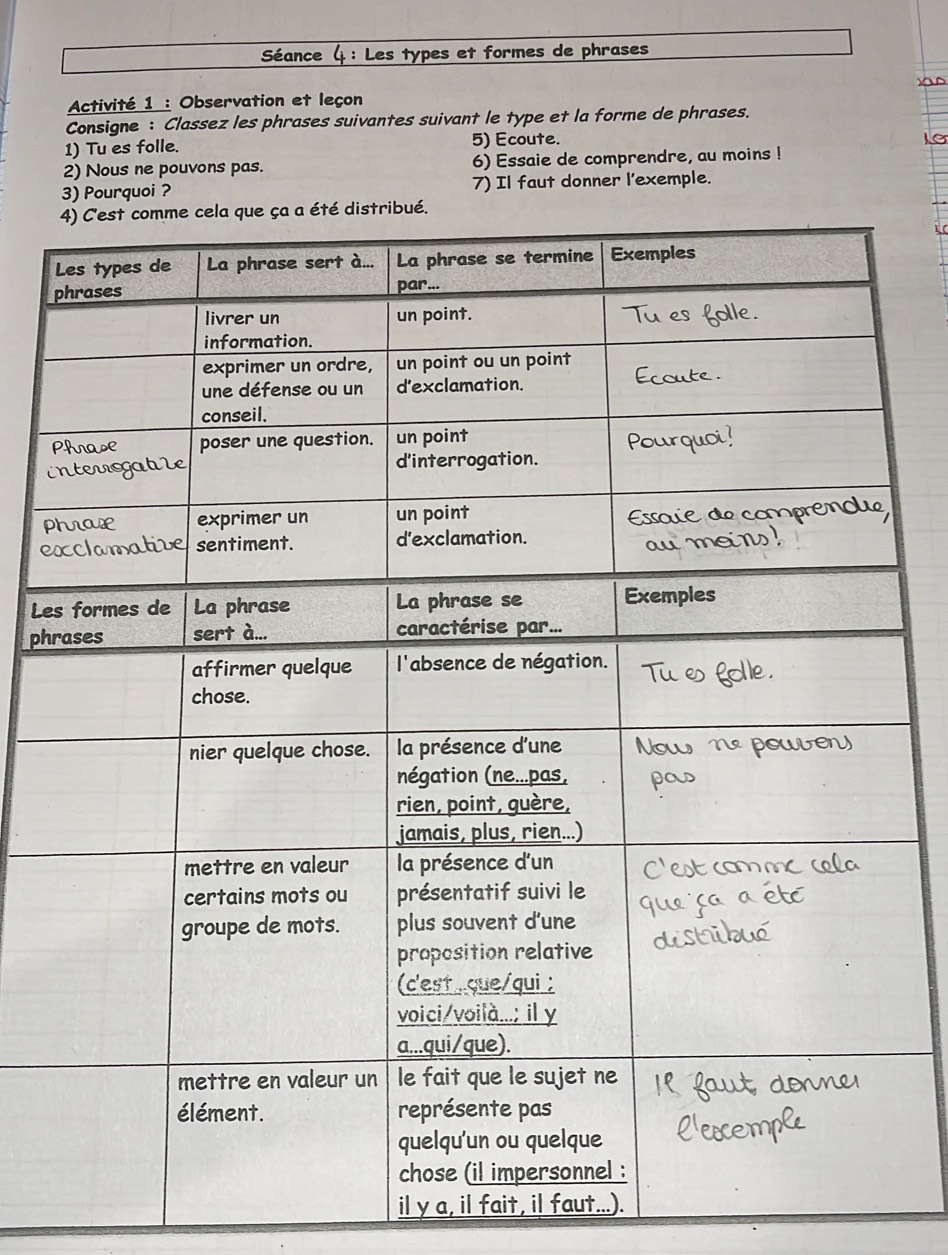 Séance 4 : Les types et formes de phrases
Activité 1 : Observation et leçon
Consigne : Classez les phrases suivantes suivant le type et la forme de phrases.
1) Tu es folle.
2) Nous ne pouvons pas.
3) Pourquoi ?
4) C'est comme cela que ça a été distribué.
5) Ecoute.
6) Essaie de comprendre, au moins !
7) Il faut donner l'exemple.
Les types de
phrases
La phrase sert à...
La phrase se termine
par...
Exemples
livrer un
information.
un point.
Tu es folle.
exprimer un ordre,
une défense ou un
conseil.
un point ou un point
d'exclamation.
Ecoute.
Phrase
interrogative
poser une question.
un point
d'interrogation.
Pourquoi?
phrase
exclamative
exprimer un
sentiment.
un point
d'exclamation.
Essaie de comprendre,
au moins!
Les formes de
phrases
La phrase
sert à...
La phrase se
caractérise par...
Exemples
affirmer quelque
chose.
l'absence de négation.
Tu es folle.
nier quelque chose.
la présence d'une
négation (ne...pas,
rien, point, guère,
jamais, plus, rien...)
Nous ne pouvons
pas
mettre en valeur
certains mots ou
groupe de mots.
la présence d'un
présentatif suivi le
plus souvent d'une
proposition relative
(c'est...que/qui ;
voici/voilà...; il y
a...qui/que).
C'est comme cela
que ça a été
distribué
mettre en valeur un
élément.
le fait que le sujet ne
représente pas
quelqu'un ou quelque
chose (il impersonnel :
il y a, il fait, il faut...).
Il faut donner
l'exemple